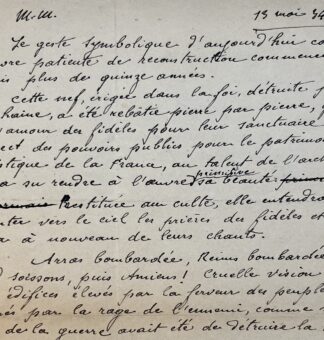 M.M. 13 mai 34
Le geste symbolique d'aujourd'hui co
vre patiente de reconstruction commen
is plus des quinze années.
Cette nef, érigée dans la foi, détruite
haine, a été rebâtie pierre par pierre,
'amour des fidèles pour leur sanctuaire
ect des pouvoirs publics pour le patrimo
stique de la France, au talent de l'arch
a su rendre à l'œuvre sa primitive beauté
Restituée au culte, elle entendra
nter vers le ciel les prières des fidèles et
a à nouveau de leurs chants.
Arras bombardée, Reims bombardée
Soissons, puis Amiens! Cruelle vision
édifices élevés par la ferveur des peuple
és par la rage de l'ennemi, comme
de la guerre avait été de détruire la